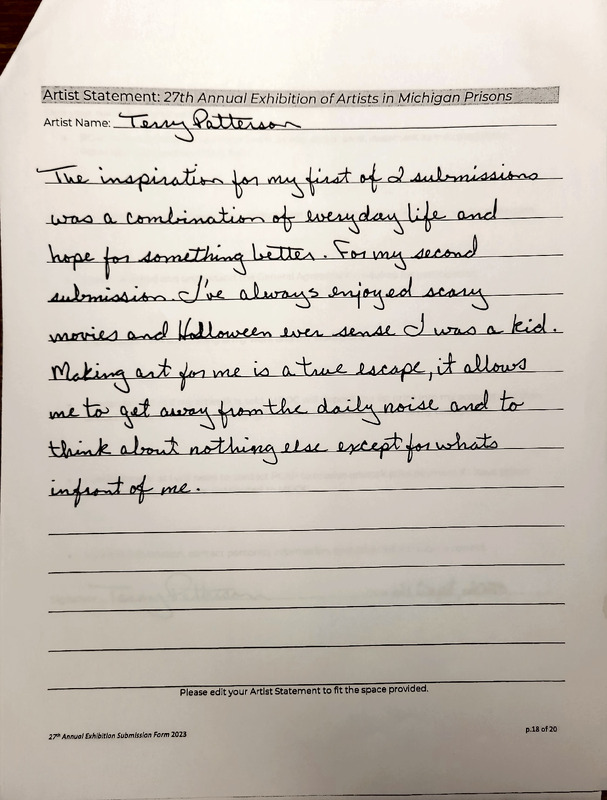 Artist Statement: 27th Annual Exhibition of Artists in Michigan Prisons
Artist Name: Terry Patterson
The inspiration for my first of 2 submissions
was a combination of everyday life and
hope for something better. For my second
submission. I've always enjoyed scary
movies and Halloween ever sense I was a kid.
Making art for me is a true escape, it allows
me to get away from the daily noise and to
think about nothing else except for whats
infront of me.
Please edit your Artist Statement to fit the space provided.
27th Annual Exhibition Submission Form 2023
p.18 of 20